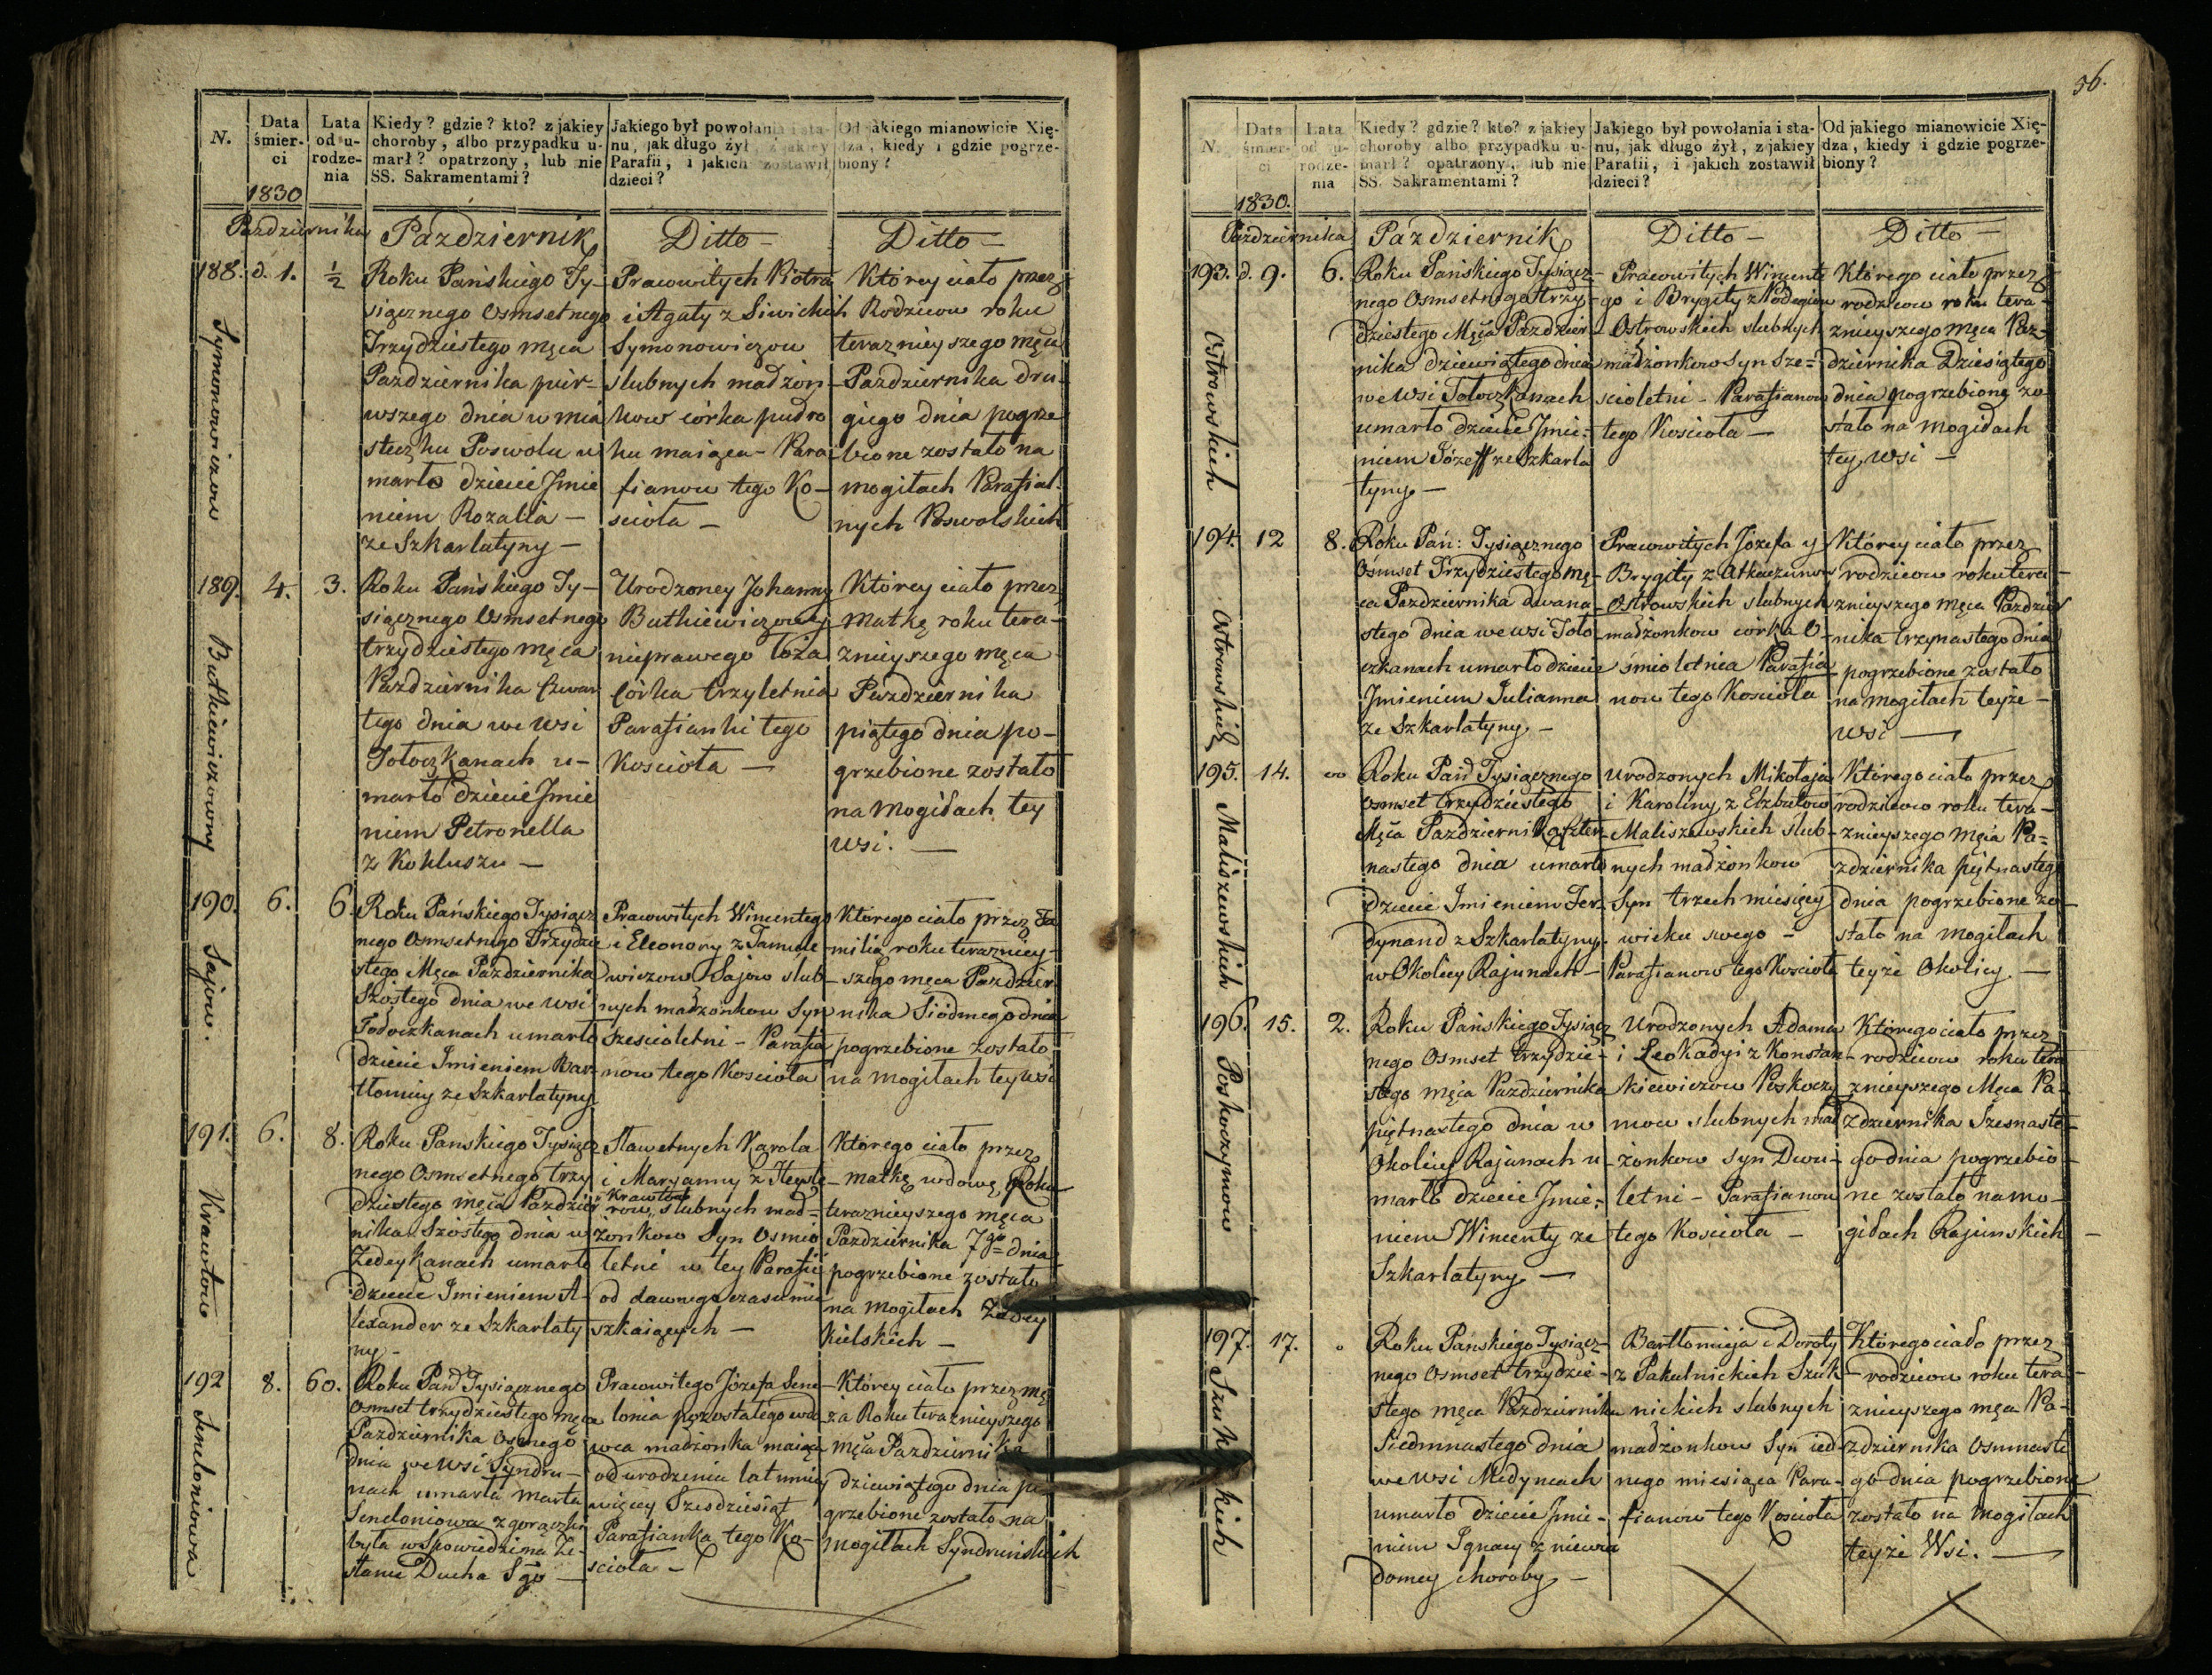 N.
Data śmierci
Lata od urodzenia
Kiedy? gdzie? kto? z jakiey
choroby, albo przypadku u-
marł? opatrzony, lub nie
SS. Sakramentami?
Jakiego był powołania i sta-
nu, jak długo żył, z jakiey
Parafii, i jakich zostawił
dzieci?
Od jakiego mianowicie Xię-
dza, kiedy i gdzie pogrze-
biony?
1830
Pazdziernika
Pazdziernik
Ditto —
Ditto —
188. d. 1. ½
Symonowiczow
Roku Pańskiego Ty-
siącznego Osmsetnego
Trzydziestego męca
Pazdziernika pier-
wszego dnia w mia
steczku Poswolu u
marło dziecie Jmie
niem Rozalia —
ze Szkarlatyny —
Prawowitych Piotra
i Agaty z Siwickich
Symonowiczow
slubnych małżon-
kow corka pułro
ku maiąca - Para
fianow tego Ko-
scioła —
Ktorey ciało przez
Rodzicow roku
teraznieyszego męca
Pazdziernika dru-
giego dnia pogrze
bione zostało na
mogiłach Parafial-
nych Poswolskich
189. 4. 3.
Butkiewiczowny
Roku Pańskiego Ty-
siącznego Osmsetnego
trzydziestego męca
Pazdziernika Czwar
tego dnia we wsi
Tołoczkanach u-
marło dziecie Jmie
niem Petronella
z Kokluszu —
Urodzoney Johanny
Butkiewiczowny
nieprawego łoża
Corka trzyletnia
Parafianki tego
Koscioła —
Ktorey ciało przez
Matkę roku tera-
znieyszego męca
Pazdziernika
piątego dnia po-
grzebione zostało
na Mogiłach tey
wsi. —
190. 6. 6.
Sajow.
Roku Pańskiego Tysiącz
nego Osmsetnego Trzydzie
stego Męca Pazdziernika
Szóstego dnia we wsi
Tołoczkanach umarło
dziecie Imieniem Bar
tłomiey ze Szkarlatyny
Prawowitych Wincentego
i Eleonory z Tamule
wiczow Sajow slub-
nych małżonkow Syn
szescioletni - Parafia
now tego Koscioła
Ktorego ciało przez Fa
milią roku terazniey-
szego męca Pazdzier
nika Siódmego dnia
pogrzebione zostało
na mogiłach tey wsi
191. 6. 8.
Krawtow
Roku Panskiego Tysiącz
nego Osmsetnego trzy
dziestego męca Pazdzier
nika Szostego dnia w
Zedeykanach umarło
dziecie Imieniem A-
lexander ze Szkarlaty
ny —
Sławetnych Karola
i Maryanny z
Krawtow
row slubnych mał-
żonkow Syn Osmio
letni w tey Parafii
od dawnego czasu mie
szkaiących —
Ktorego ciało przez
matkę wdowę Roku
teraznieyszego męca
Pazdziernika 7go dnia
pogrzebione zostało
na Mogiłach Zedey
kielskich —
192 8. 60.
Seneloniowa
Roku Pań Tysiącznego
Osmset trzydziestego męca
Pazdziernika Osmego
dnia we wsi Syndru-
nach umarła Marta
Seneloniowa z gorączki
była w Spowiedzi na Ze-
słanie Ducha Sgo —
Prawowitego Józefa Sene
lonia pozostałego wdo
wca małżonka maiąca
od urodzenia lat mniey
więcey Szesdziesiąt
Parafianka tego Ko-
scioła —
Ktorey ciało przez mę
ża Roku teraznieyszego
męca Pazdziernika
dziewiątego dnia po
grzebione zostało na
mogiłach Syndruńskich
56.
N.
Data śmierci
Lata od urodzenia
Kiedy? gdzie? kto? z jakiey
choroby albo przypadku u-
marł? opatrzony, lub nie
SS. Sakramentami?
Jakiego był powołania i sta-
nu, jak długo żył, z jakiey
Parafii, i jakich zostawił
dzieci?
Od jakiego mianowicie Xię-
dza, kiedy i gdzie pogrze-
biony?
1830.
Pazdziernika
Pazdziernik
Ditto —
Ditto —
193. d. 9. 6.
Ostrowskich
Roku Pańskiego Tysiącz-
nego Osmsetnego trzy-
dziestego Męca Pazdzier
nika dziewiątego dnia
we wsi Tołoczkanach
umarło dziecie Jmie-
niem Józeff ze Szkarla
tyny —
Prawowitych Wincente
go i Brygity z
Ostrowskich slubnych
małżonkow Syn Sze-
scioletni - Parafianow
tego Koscioła —
Ktorego ciało przez
rodzicow roku tera-
znieyszego męca Paz-
dziernika Dziesiątego
dnia pogrzebione zo-
stało na mogiłach
tey wsi —
194. 12 8.
Ostrowskich
Roku Pań: Tysiącznego
Osmset Trzydziestego mę-
ca Pazdziernika dwana-
stego dnia we wsi Toło-
czkanach umarło dziecie
Jmieniem Julianna
ze Szkarlatyny —
Prawowitych Józefa y
Brygity z
Ostrowskich slubnych
małżonkow corka O-
śmioletnia Parafia
now tego Koscioła
Ktorey ciało przez
rodzicow roku tera-
znieyszego męca Pazdzier
nika trzynastego dnia
pogrzebione zostało
na Mogiłach teyże-
wsi —
195. 14.
Maliszewskich
Roku Pań Tysiącznego
Osmset trzydziestego
Męca Pazdziernika Czter
nastego dnia umarło
dziecie Imieniem Fer-
dynand z Szkarlatyny
w Okolicy Rajunach —
Urodzonych Mikołaja
i Karoliny z Elzbutow
Maliszewskich ślub-
nych małżonkow
Syn trzech miesięcy
wieku swego —
Parafianow tego Koscioła
Ktorego ciało przez
rodzicow roku tera-
znieyszego męca Pa-
zdziernika piętnastego
dnia pogrzebione zo-
stało na Mogiłach
teyże Okolicy. —
196. 15. 2.
Poskoczymow
Roku Pańskiego Tysiącz
nego Osmset trzydzie-
stego męca Pazdziernika
piętnastego dnia w
Okolicy Rajunach u-
marło dziecie Jmie-
niem Wincenty ze
Szkarlatyny —
Urodzonych Adama
i Leokadyi z Konstan-
kiewiczow Poskoczy
mow slubnych mał
żonkow Syn Dwu-
letni - Parafianow
tego Koscioła —
Ktorego ciało przez
rodzicow roku tera
znieyszego Męca Pa-
zdziernika Szesnaste-
go dnia pogrzebio-
ne zostało na mo-
giłach Rajunskich —
197. 17.
Szuknickich
Roku Pańskiego Tysiącz-
nego Osmset trzydzie-
stego męca Pazdziernika
Siedmnastego dnia
we wsi Medyneach
umarło dziecie Jmie-
niem Ignacy z niewia
domey choroby —
Bartłomieja i Doroty
z Pakulnickich Szuk-
nickich slubnych
małżonkow Syn ied-
nego miesiąca Para-
fianow tego Koscioła
Ktorego ciało przez
rodzicow roku tera-
znieyszego męca Pa-
zdziernika Osmnaste
go dnia pogrzebione
zostało na Mogiłach
teyże Wsi. —